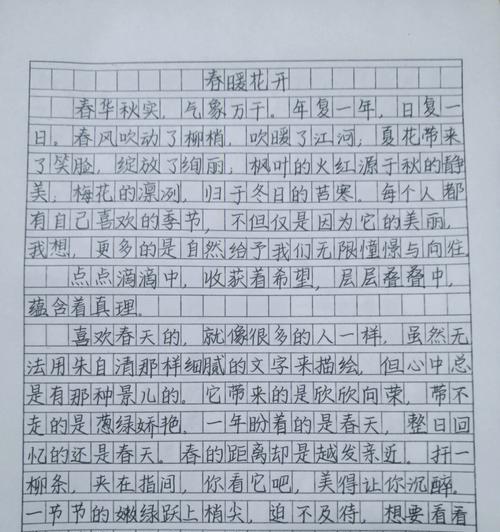 春暖花开
春华秋实，气象万千。年复一年，日复一
日。春风吹动了柳梢，吹暖了江河；夏花带来
了笑脸，绽放了绚丽；枫叶的火红源于秋的静
美；梅花的凛冽，归于冬日的苦寒。每个人都
有自己喜欢的季节，不但仅是因为它的美丽，
我想，更多的是自然给予我们无限憧憬与向往。
点点滴滴中，收获着希望，层层叠叠中，
蕴含着真理。
喜欢春天的，就像很多的人一样，虽然无
法用朱自清那样细腻的文字来描绘，但心中总
是有那种景儿的。它带来的是欣欣向荣，带不
走的是葱绿娇艳。一年盼着的是春天，整日回
忆的还是春天。春的距离却是越发亲近。扦一
柳条，夹在指间，你看它吧，美得让你沉醉。
一节节的嫩绿跃上梢尖，迫不及待，想要看看